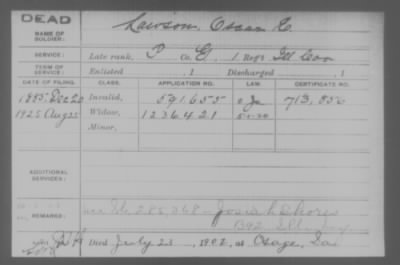 DEAD
NAME OF SOLDIER: Lawson, Oscar C.
SERVICE: Late rank, P Co. G, 1 Reg't Ill Cav
TERM OF SERVICE: Enlisted , 1 Discharged , 1
DATE OF FILING. CLASS. APPLICATION NO. LAW. CERTIFICATE NO.
1885 Dec 20 Invalid, 591655 713,856
1925 Aug 25 Widow, 1236421 5-1-20
Minor,
ADDITIONAL SERVICES:
REMARKS: 285,368 Josiah Shores
Died July 23, 1902, at Osage, Ia